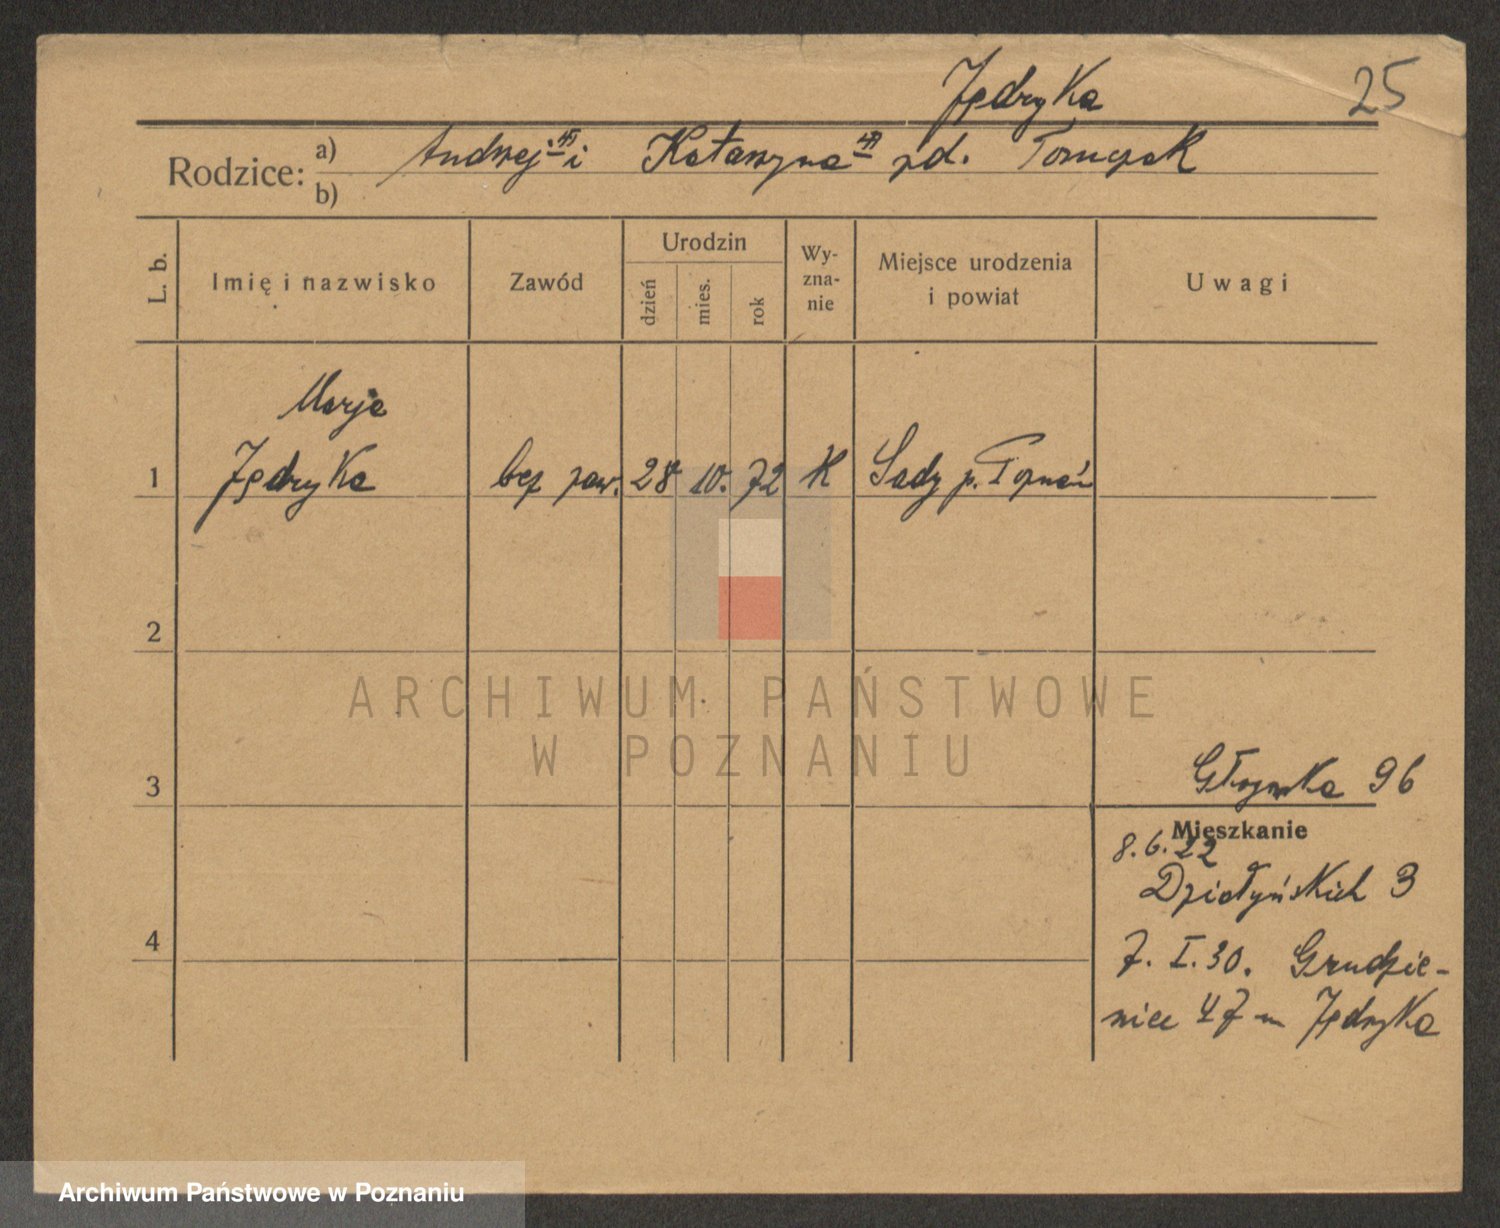 Jędryka 25
Rodzice: a) Andrzej i Katarzyna zd. Tomczak
b)
L. b. Imię i nazwisko Zawód Urodzin dzień mies. rok Wy-zna-nie Miejsce urodzenia i powiat Uwagi
Marja
1 Jędryka bez zaw. 28 10. 72 K Sady p. Poznań
2
ARCHIWUM PAŃSTWOWE
W POZNANIU
3 96
Mieszkanie
8.6.22
Działyńskich 3
4 7. I. 30. Grudzie-
niec 47 Jędryka
Archiwum Państwowe w Poznaniu